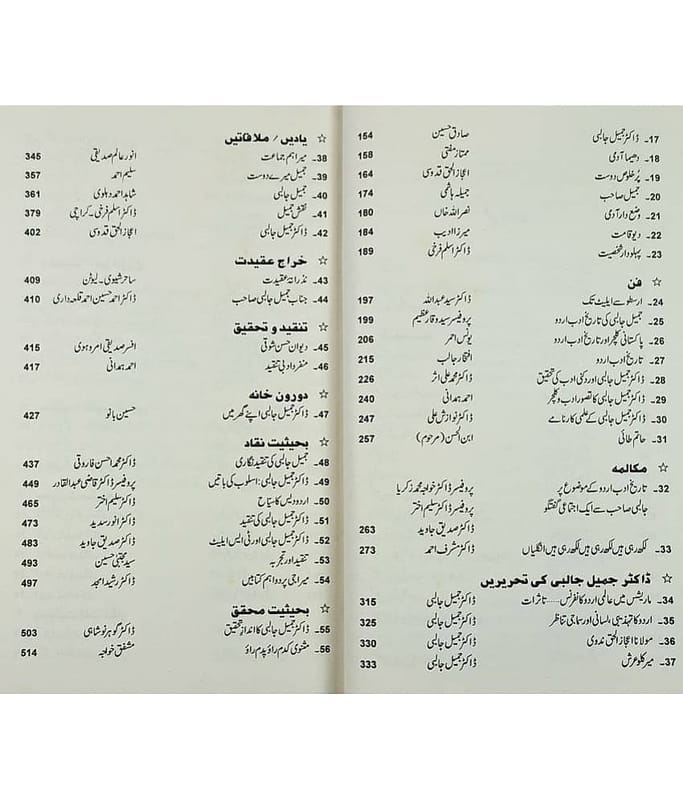 17۔ ڈاکٹر جمیل جالبی صادق حسین 154
18۔ دھیما آدمی ممتاز مفتی 158
19۔ پُر خلوص دوست اعجاز الحق قدوسی 164
20۔ جمیل صاحب جمیلہ ہاشمی 174
21۔ وضع دار آدمی نصر اللہ خاں 180
22۔ دیو قامت میرزا ادیب 184
23۔ پہلو دار شخصیت ڈاکٹر اسلم فرخی 189
☆ فن
24۔ ارسطو سے ایلیٹ تک ڈاکٹر سید عبد اللہ 197
25۔ جمیل جالبی کی تاریخ ادب اردو پروفیسر سید وقار عظیم 199
26۔ پاکستانی کلچر اور تاریخ ادب اردو یونس احمر 206
27۔ تاریخ ادب اردو افتخار جالب 215
28۔ ڈاکٹر جمیل جالبی اور دکنی ادب کی تحقیق ڈاکٹر محمد علی اثر 226
29۔ ڈاکٹر جمیل جالبی کا تصور ادب و کلچر احمد ہمدانی 240
30۔ ڈاکٹر جمیل جالبی کے علمی کارنامے ڈاکٹر نوازش علی 247
31۔ حاتم طائی ابن الحسن (مرحوم) 257
☆ مکالمہ
32۔ تاریخ ادب اردو کے موضوع پر پروفیسر ڈاکٹر خواجہ محمد زکریا
جالبی صاحب سے ایک اجتماعی گفتگو پروفیسر ڈاکٹر سلیم اختر
ڈاکٹر صدیق جاوید 263
33۔ لکھ رہی ہیں لکھ رہی ہیں لکھ رہی ہیں انگلیاں ڈاکٹر مشرف احمد 273
☆ ڈاکٹر جمیل جالبی کی تحریریں
34۔ ماریشس میں عالمی اردو کانفرنس...... تاثرات ڈاکٹر جمیل جالبی 315
35۔ اردو کا تہذیبی، لسانی اور سماجی تناظر ڈاکٹر جمیل جالبی 325
36۔ مولانا اعجاز الحق ندوی ڈاکٹر جمیل جالبی 330
37۔ میر کلو عرش ڈاکٹر جمیل جالبی 333
☆ یادیں / ملاقاتیں
38۔ میرا ہم جماعت انور عالم صدیقی 345
39۔ جمیل میرے دوست سلیم احمد 357
40۔ جمیل جالبی شاہد احمد دہلوی 361
41۔ نقش جمیل ڈاکٹر اسلم فرخی۔ کراچی 379
42۔ ڈاکٹر جمیل جالبی اعجاز الحق قدوسی 402
☆ خراج عقیدت
43۔ نذرانۂ عقیدت ساحر شیوی۔ لیوٹن 409
44۔ جناب جمیل جالبی صاحب ڈاکٹر احمد حسین احمد قلعہ داری 410
☆ تنقید و تحقیق
45۔ دیوان حسن شوقی افسر صدیقی امروہوی 415
46۔ منفرد ادبی تنقید احمد ہمدانی 417
☆ دورون خانہ
47۔ ڈاکٹر جمیل جالبی اپنے گھر میں حسین بانو 427
☆ بحیثیت نقاد
48۔ جمیل جالبی کی تنقید نگاری ڈاکٹر محمد احسن فاروقی 437
49۔ ڈاکٹر جمیل جالبی: اسلوب کی باتیں پروفیسر ڈاکٹر قاضی عبد القادر 449
50۔ اردو دیس کا سیاح ڈاکٹر سلیم اختر 465
51۔ ڈاکٹر جمیل جالبی کی تنقید ڈاکٹر انور سدید 473
52۔ ڈاکٹر جمیل جالبی اور ٹی ایس ایلیٹ ڈاکٹر صدیق جاوید 483
53۔ تنقید اور تجربہ سید مجتبیٰ حسین 493
54۔ میراجی پر دو اہم کتابیں ڈاکٹر رشید امجد 497
☆ بحیثیت محقق
55۔ ڈاکٹر جمیل جالبی کا انداز تحقیق ڈاکٹر گوہر نوشاہی 503
56۔ مثنوی کدم راؤ پدم راؤ مشفق خواجہ 514